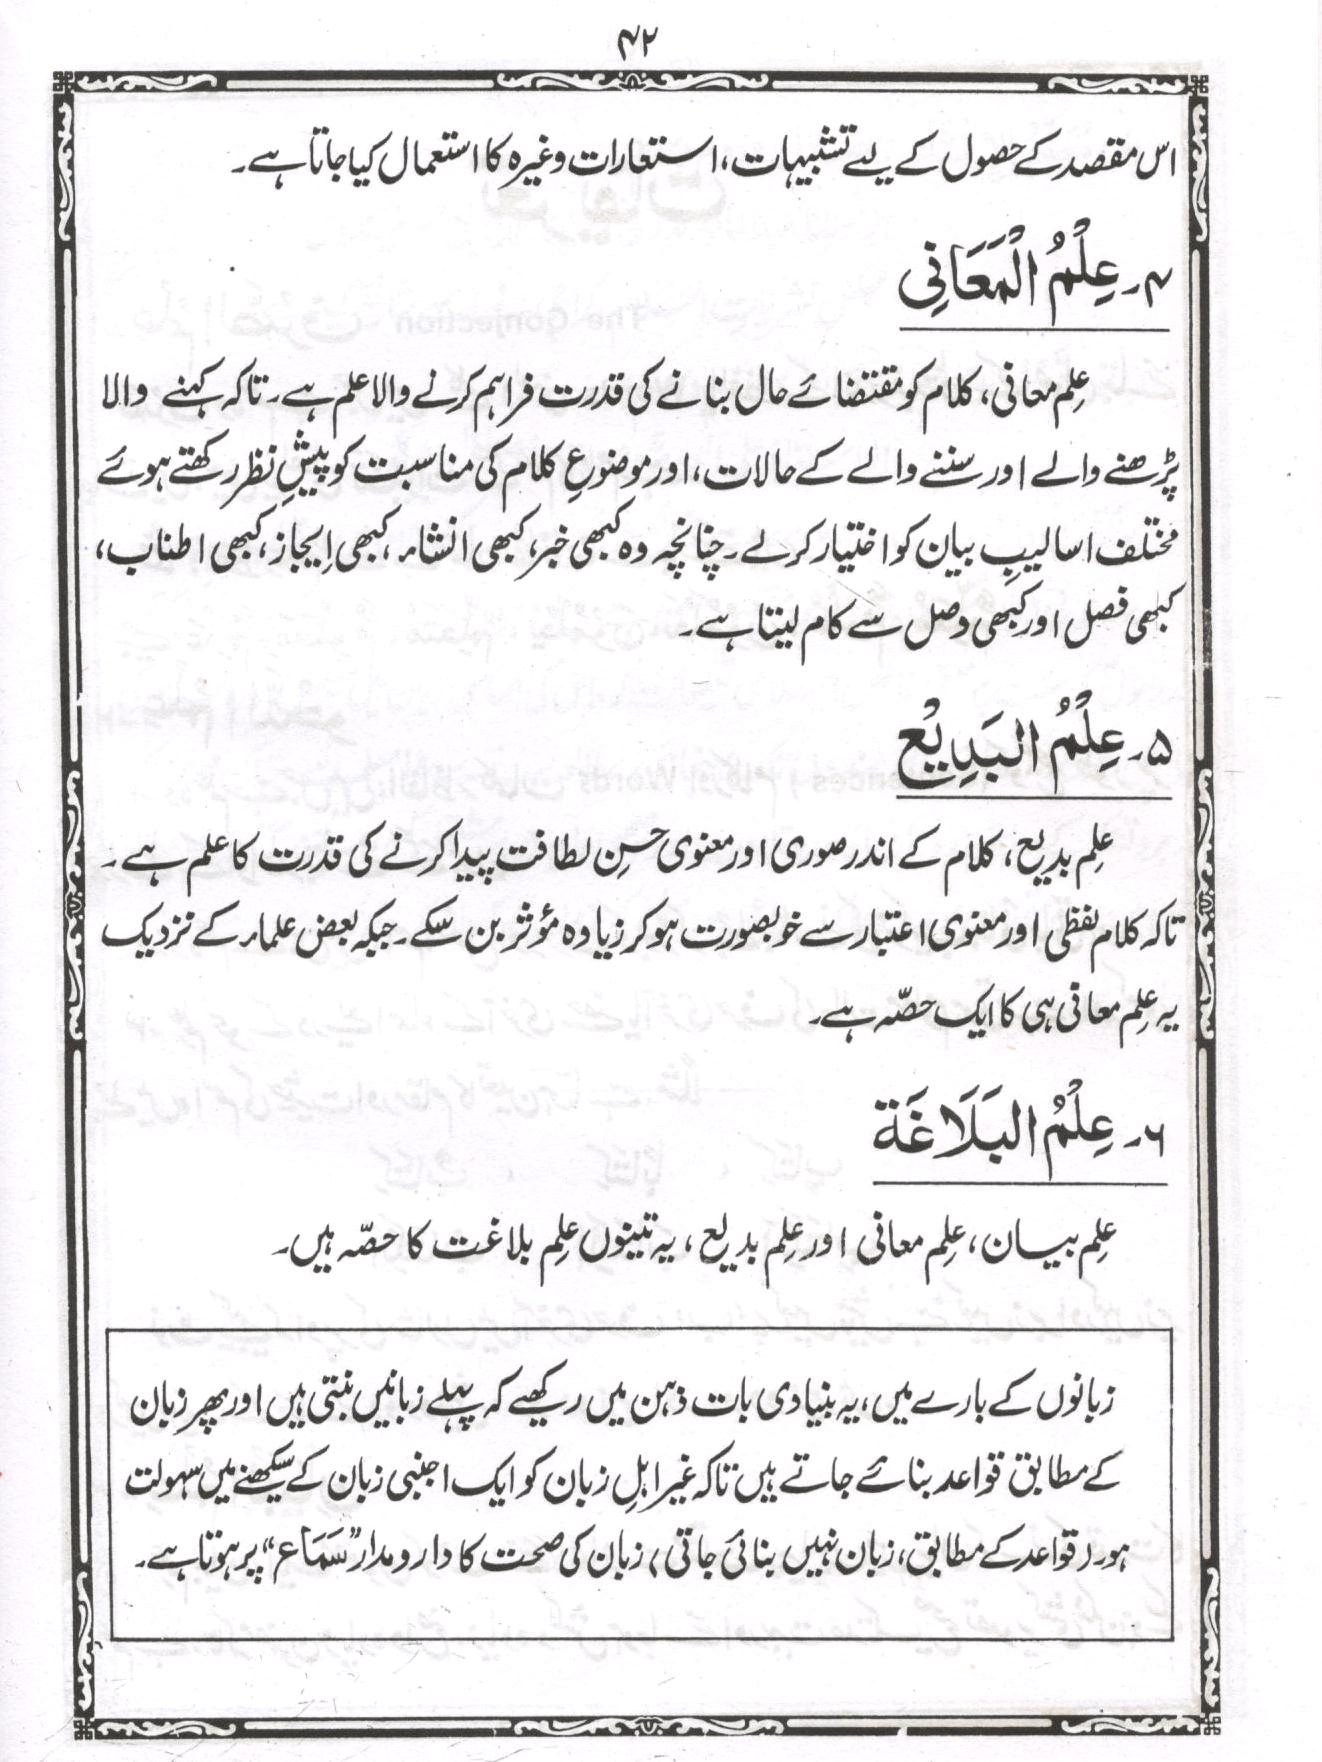 ۴۲
اس مقصد کے حصول کے لیے تشبیہات، استعارات وغیرہ کا استعمال کیا جاتا ہے۔
۴۔ عِلْمُ الْمَعَانِی
علِم معانی، کلام کو مقتضائے حال بنانے کی قدرت فراہم کرنے والا علم ہے۔ تاکہ کہنے والا
پڑھنے والے اور سننے والے کے حالات، اور موضوعِ کلام کی مناسبت کو پیشِ نظر رکھتے ہوئے
مختلف اسالیبِ بیان کو اختیار کرلے۔ چنانچہ وہ کبھی خبر، کبھی انشاء، کبھی اِیجاز، کبھی اطناب،
کبھی فصل اور کبھی وصل سے کام لیتا ہے۔
۵۔ عِلْمُ البَدِیْعِ
علِم بدیع، کلام کے اندر صوری اور معنوی حسنِ لطافت پیدا کرنے کی قدرت کا علم ہے۔
تاکہ کلام لفظی اور معنوی اعتبار سے خوبصورت ہو کر زیادہ مؤثر بن سکے۔ جبکہ بعض علماء کے نزدیک
یہ علِم معانی ہی کا ایک حصّہ ہے۔
۶۔ عِلْمُ البَلَاغَة
علِم بیان، علِم معانی اور علِم بدیع، یہ تینوں علِم بلاغت کا حصّہ ہیں۔
زبانوں کے بارے میں، یہ بنیادی بات ذہن میں رکھیے کہ پہلے زبانیں بنتی ہیں اور پھر زبان
کے مطابق قواعد بنائے جاتے ہیں تاکہ غیر اہلِ زبان کو ایک اجنبی زبان کے سیکھنے میں سہولت
ہو۔ (قواعد کے مطابق، زبان نہیں بنائی جاتی) زبان کی صحت کا دارومدار ”سَمَاع“ پر ہوتا ہے۔